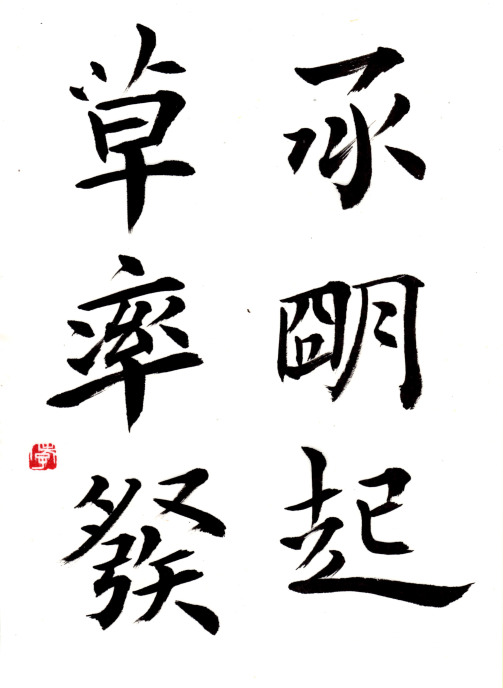 承朙起
草率發